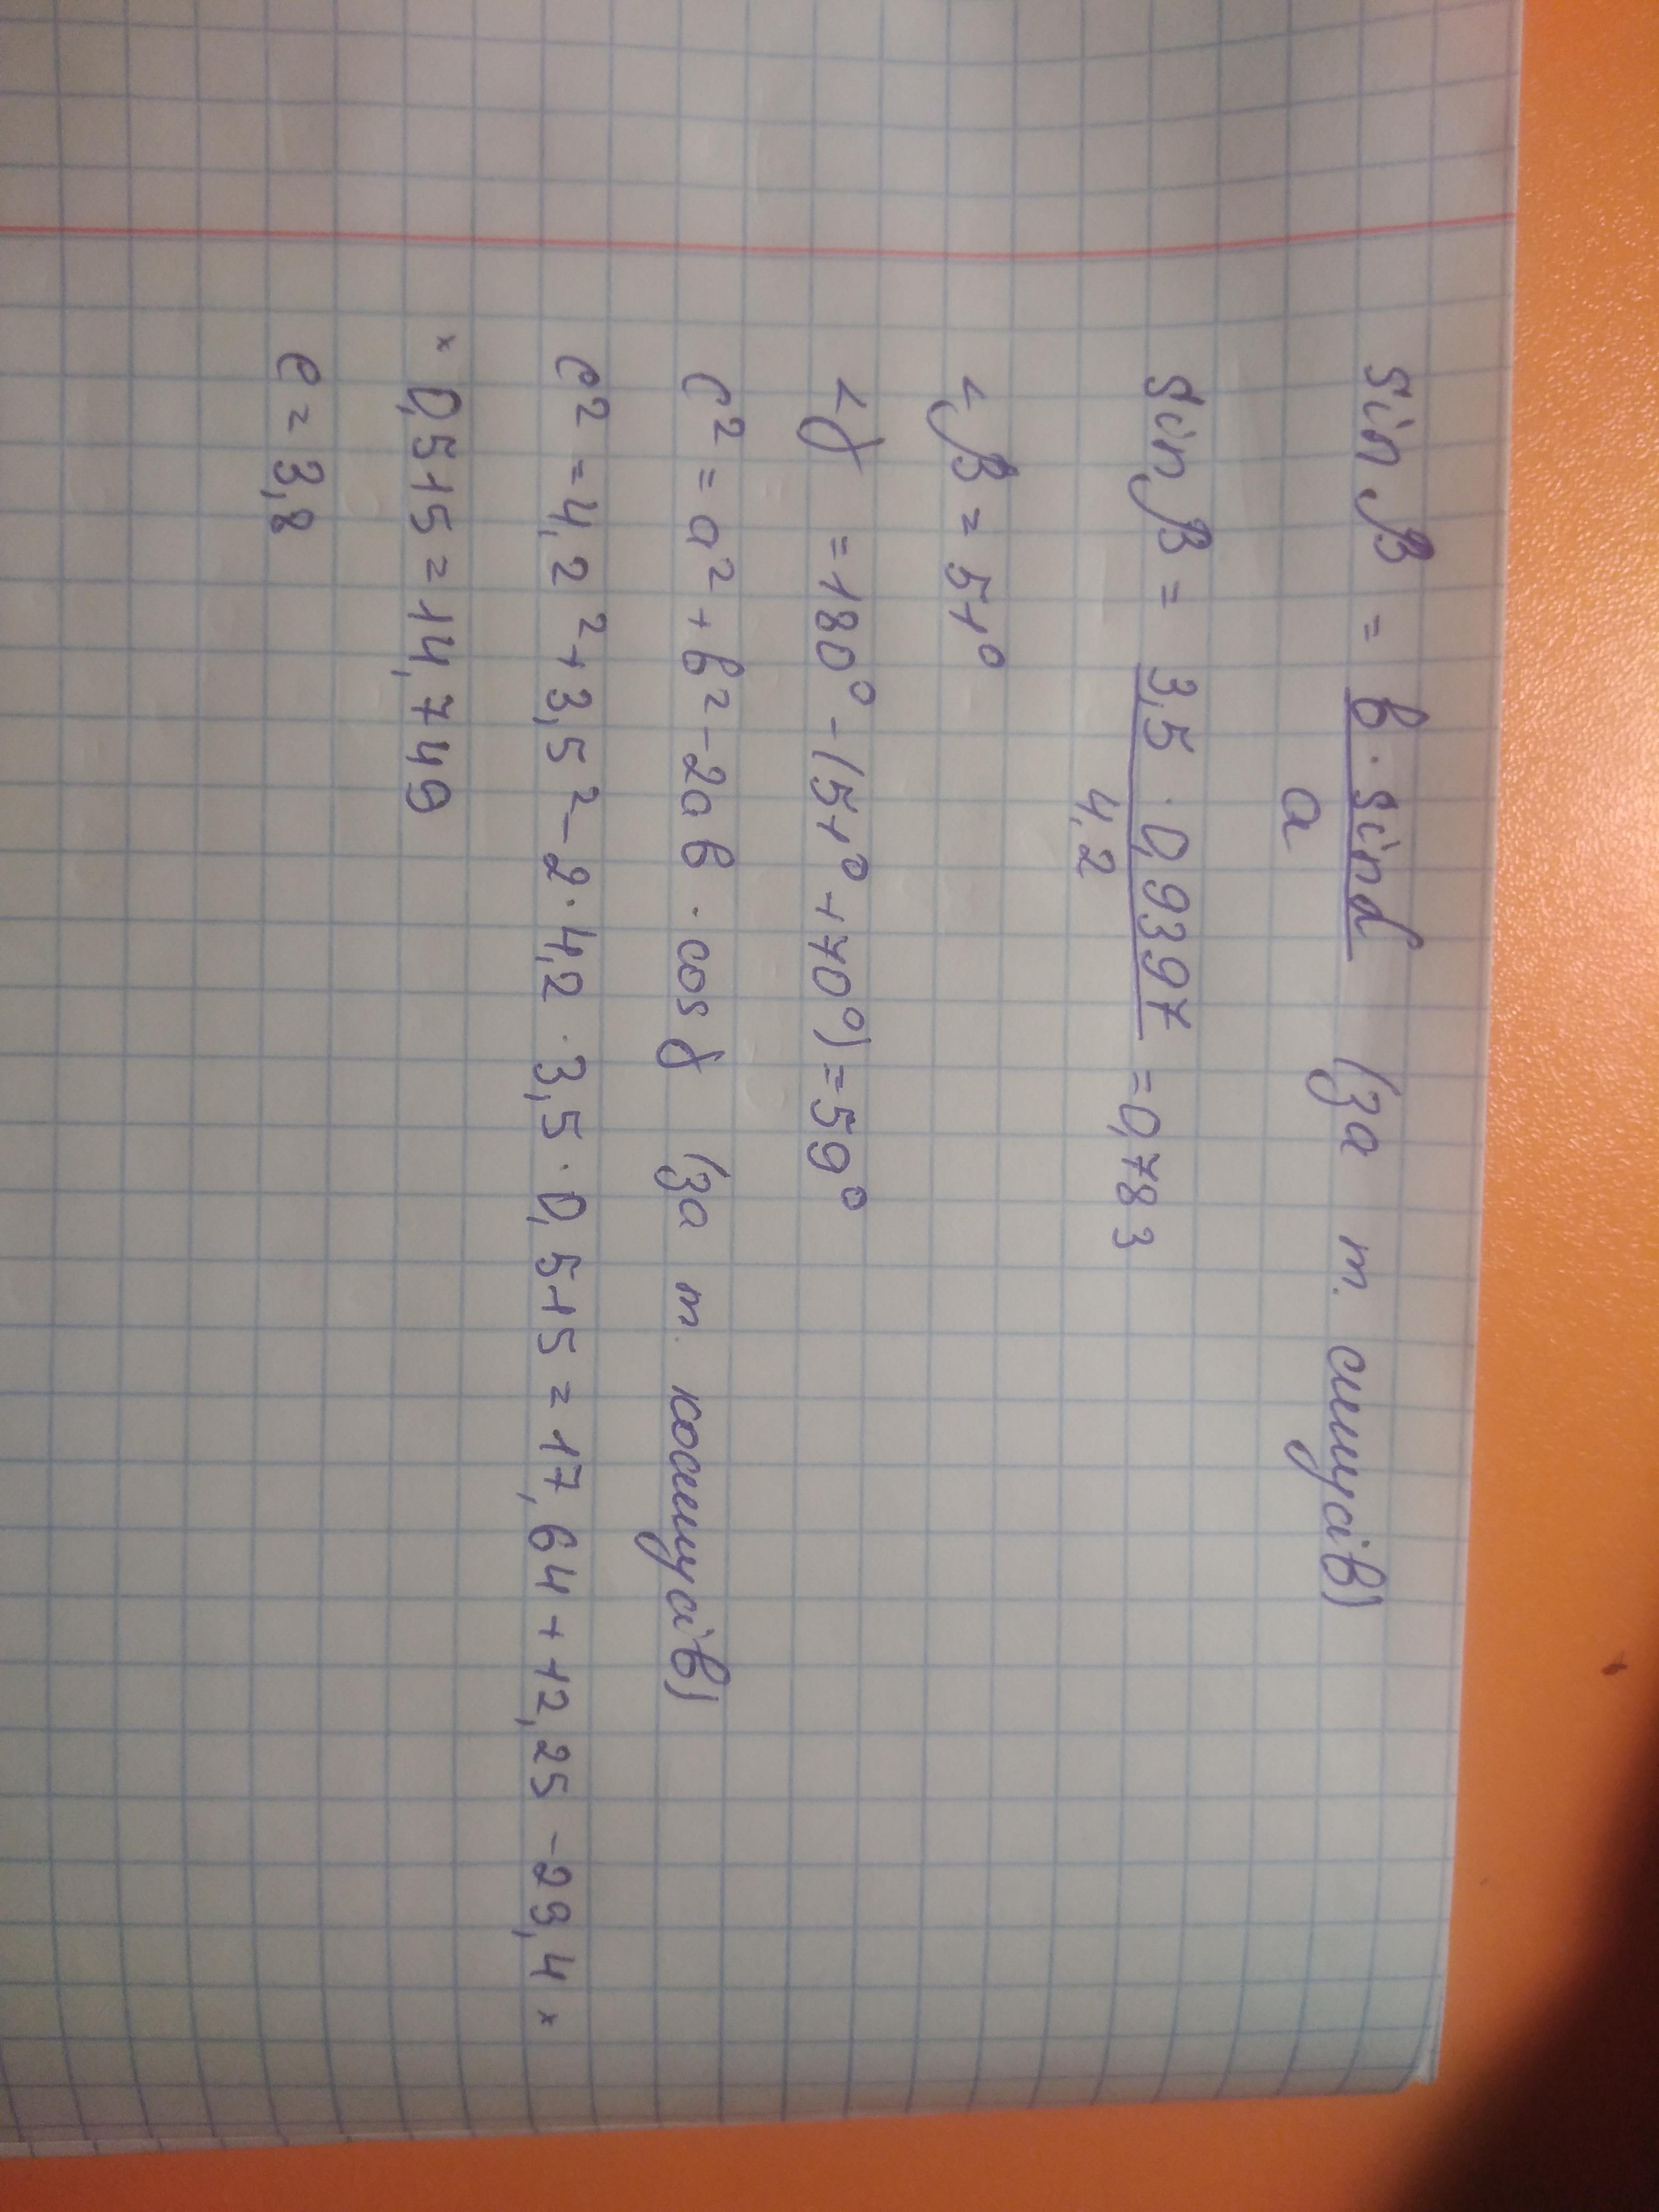 sin β = в · sin α / a (за т. синусів)
sin β = 3,5 · 0,9397 / 4,2 = 0,783
<β = 51°
<γ = 180° - (51° + 70°) = 59°
c² = a² + в² - 2aв · cos γ (за т. косинусів)
c² = 4,2² + 3,5² - 2 · 4,2 · 3,5 · 0,515 = 17,64 + 12,25 - 29,4 ×
× 0,515 = 14,749
c = 3,8